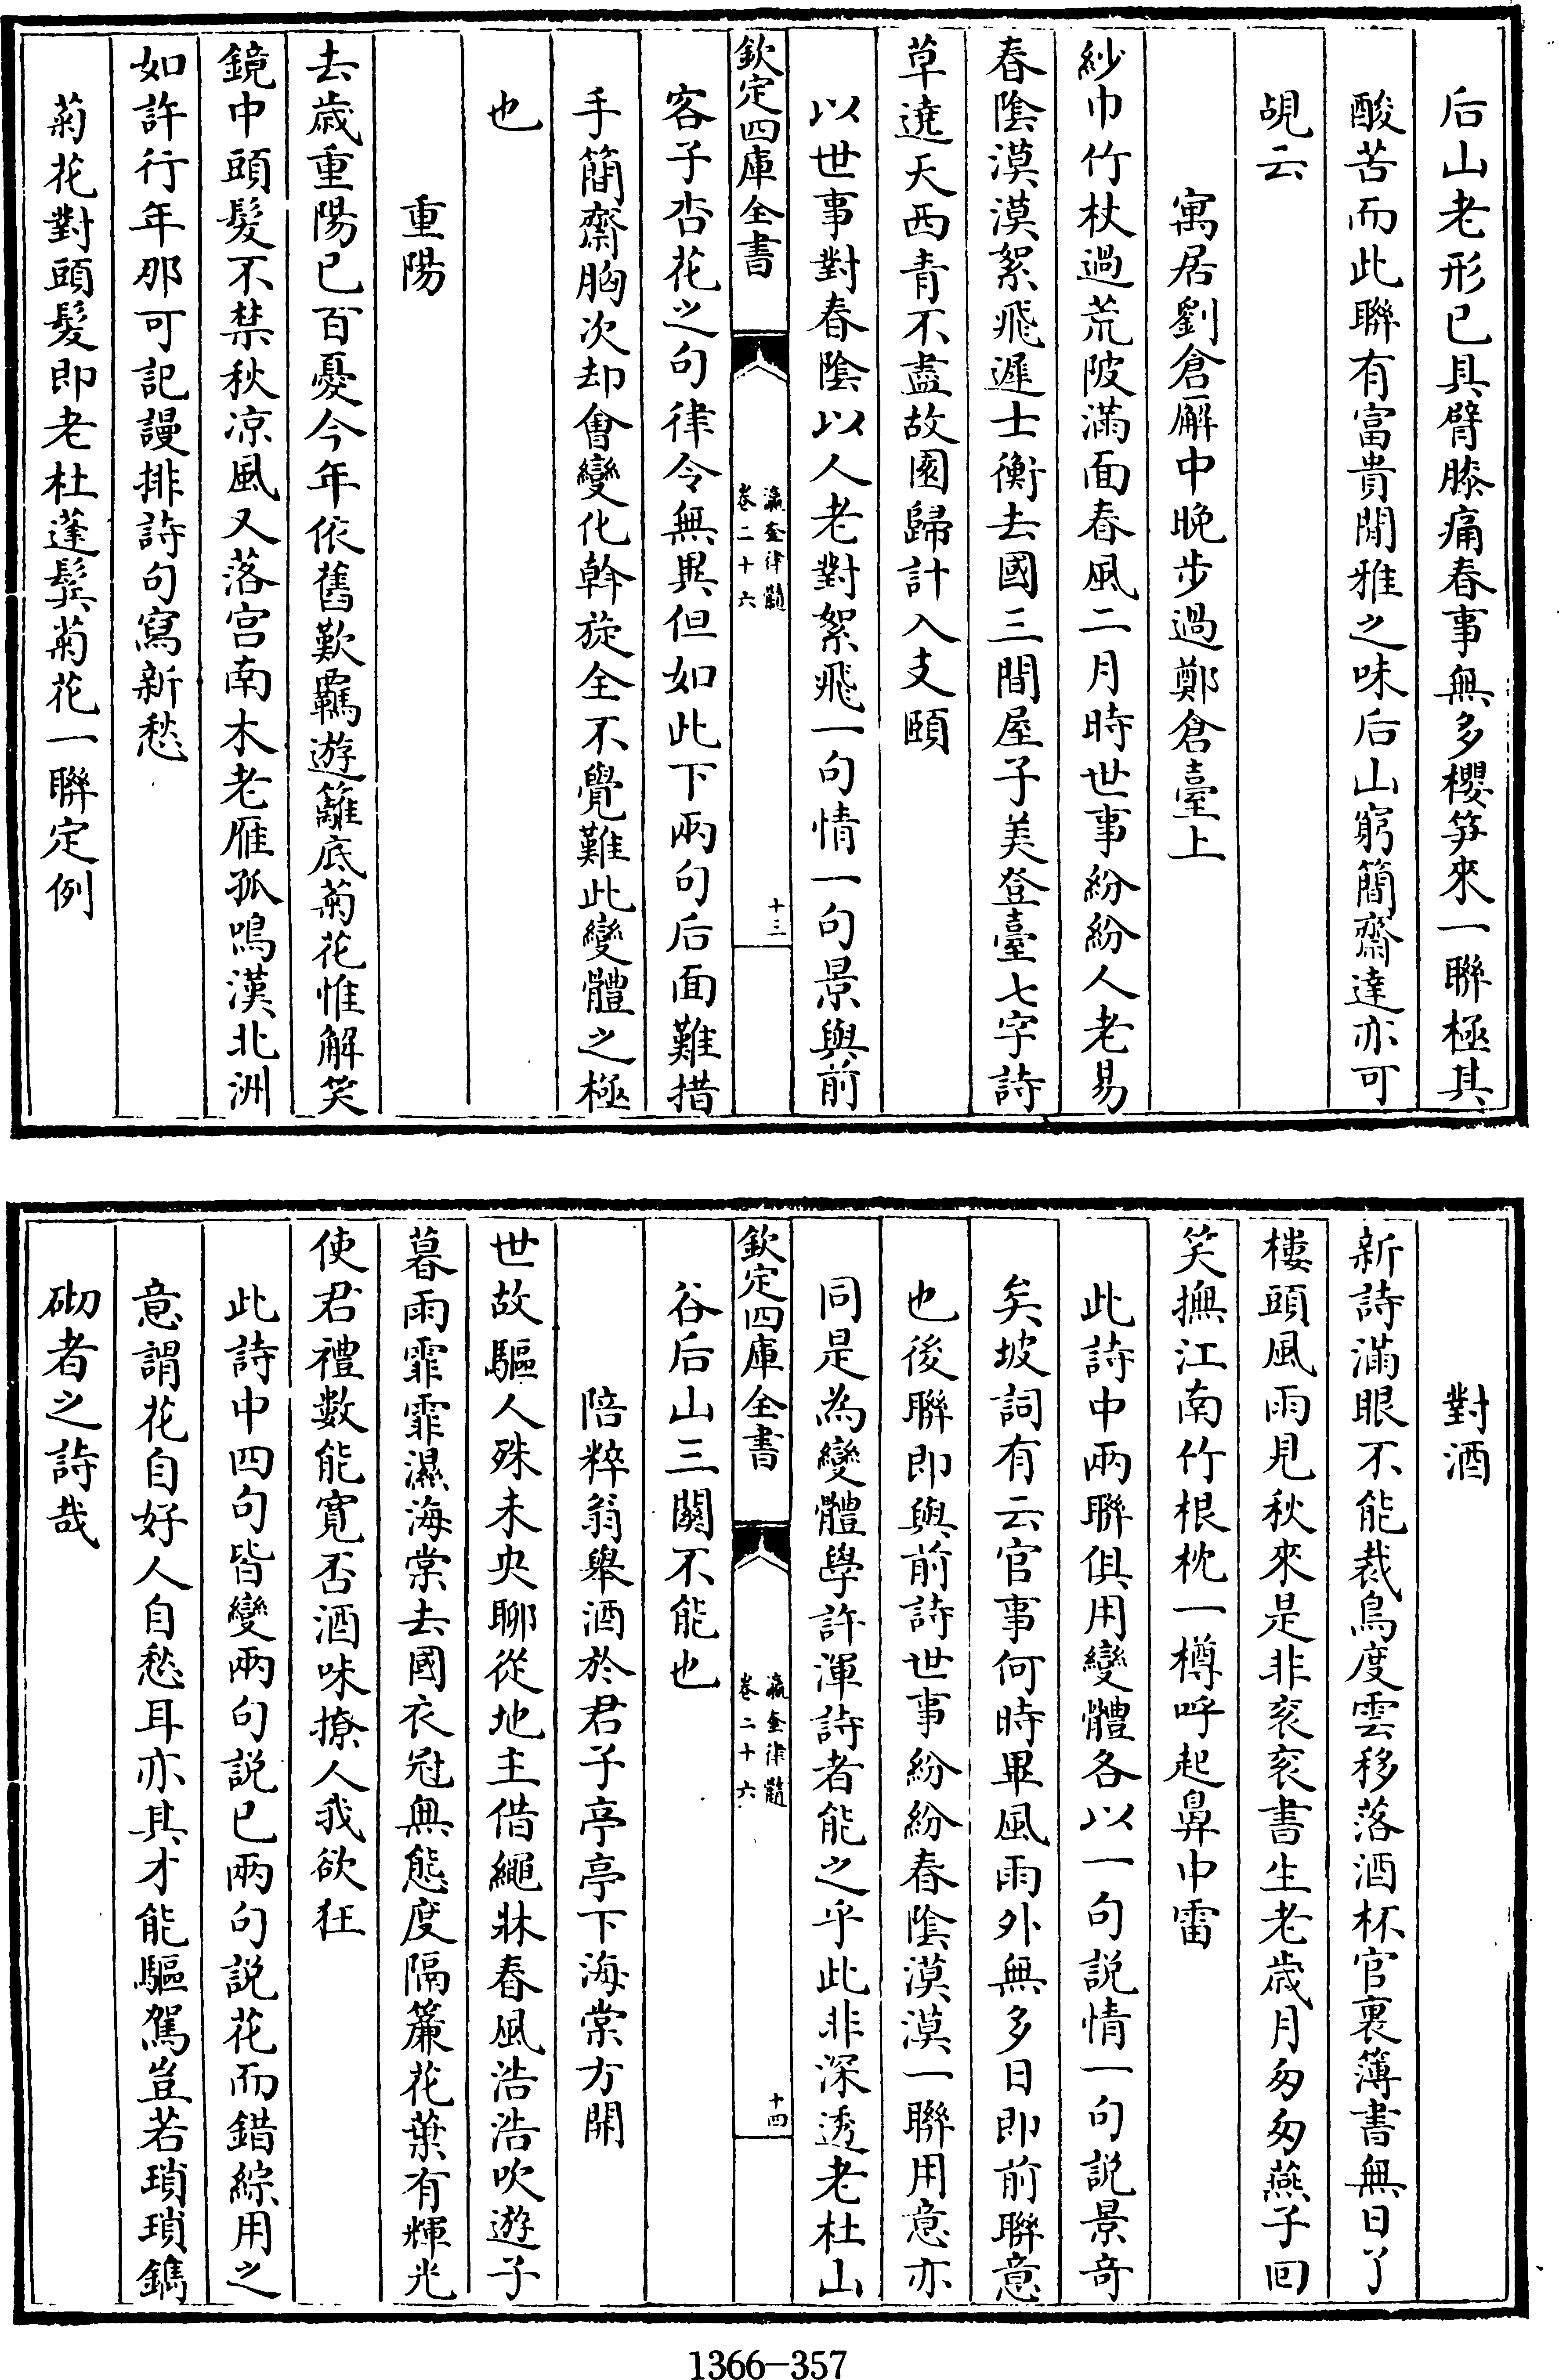 后山老形已具臂膝痛春事無多櫻笋來一聯極其
酸苦而此聯有富貴閒雅之味后山窮簡齋達亦可
覘云
寓居劉倉廨中晚步過鄭倉臺上
紗巾竹杖過荒陂滿面春風二月時世事紛紛人老易
春陰漠漠絮飛遲士衡去國三間屋子美登臺七字詩
草遶天西青不盡故園歸計入支頤
以世事對春陰以人老對絮飛一句情一句景與前
欽定四庫全書
瀛奎律髓
卷二十六
十三
客子杏花之句律令無異但如此下兩句后面難措
手簡齋胸次却會變化斡旋全不覺難此變體之極
也
重陽
去歲重陽已百憂今年依舊歎羈遊籬底菊花惟解笑
鏡中頭髮不禁秋凉風又落宫南木老雁孤鳴漢北洲
如許行年那可記謾排詩句寫新愁
菊花對頭髮即老杜蓬鬂菊花一聯定例
對酒
新詩滿眼不能裁鳥度雲移落酒杯官裏簿書無日了
樓頭風雨見秋來是非衮衮書生老歲月匆匆燕子回
笑撫江南竹根枕一樽呼起鼻中雷
此詩中兩聯俱用變體各以一句説情一句説景奇
矣坡詞有云官事何時畢風雨外無多日即前聯意
也後聯即與前詩世事紛紛春陰漠漠一聯用意亦
同是為變體學許渾詩者能之乎此非深透老杜山
欽定四庫全書
瀛奎律髓
卷二十六
十四
谷后山三關不能也
陪粹翁舉酒於君子亭亭下海棠方開
世故驅人殊未央聊從地主借繩牀春風浩浩吹遊子
暮雨霏霏濕海棠去國衣冠無態度隔簾花葉有輝光
使君禮數能寛否酒味撩人我欲狂
此詩中四句皆變兩句説已兩句説花而錯綜用之
意謂花自好人自愁耳亦其才能驅駕豈若瑣瑣鐫
砌者之詩哉
1366-357